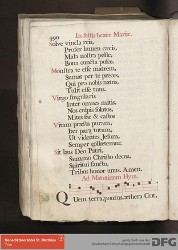 490 In festis beatæ Mariæ.
Solve vincla reis,
Profer lumen cæcis,
Mala nostra pelle,
Bona cuncta posce.
Monstra te esse matrem,
Sumat per te preces,
Qui pro nobis natus,
Tulit esse tuus.
Virgo singularis
Inter omnes mitis,
Nos culpis solutos,
Mites fac & castos.
Vitam præsta puram,
Iter para tutum,
Ut videntes Jesum,
Semper collætemur.
Sit laus Deo Patri,
Summo Christo decus,
Spiritui sancto,
Tribus honor unus. Amen.
Ad Matutinum Hym.
Quem terra, pontus, æthera Co-
DFG